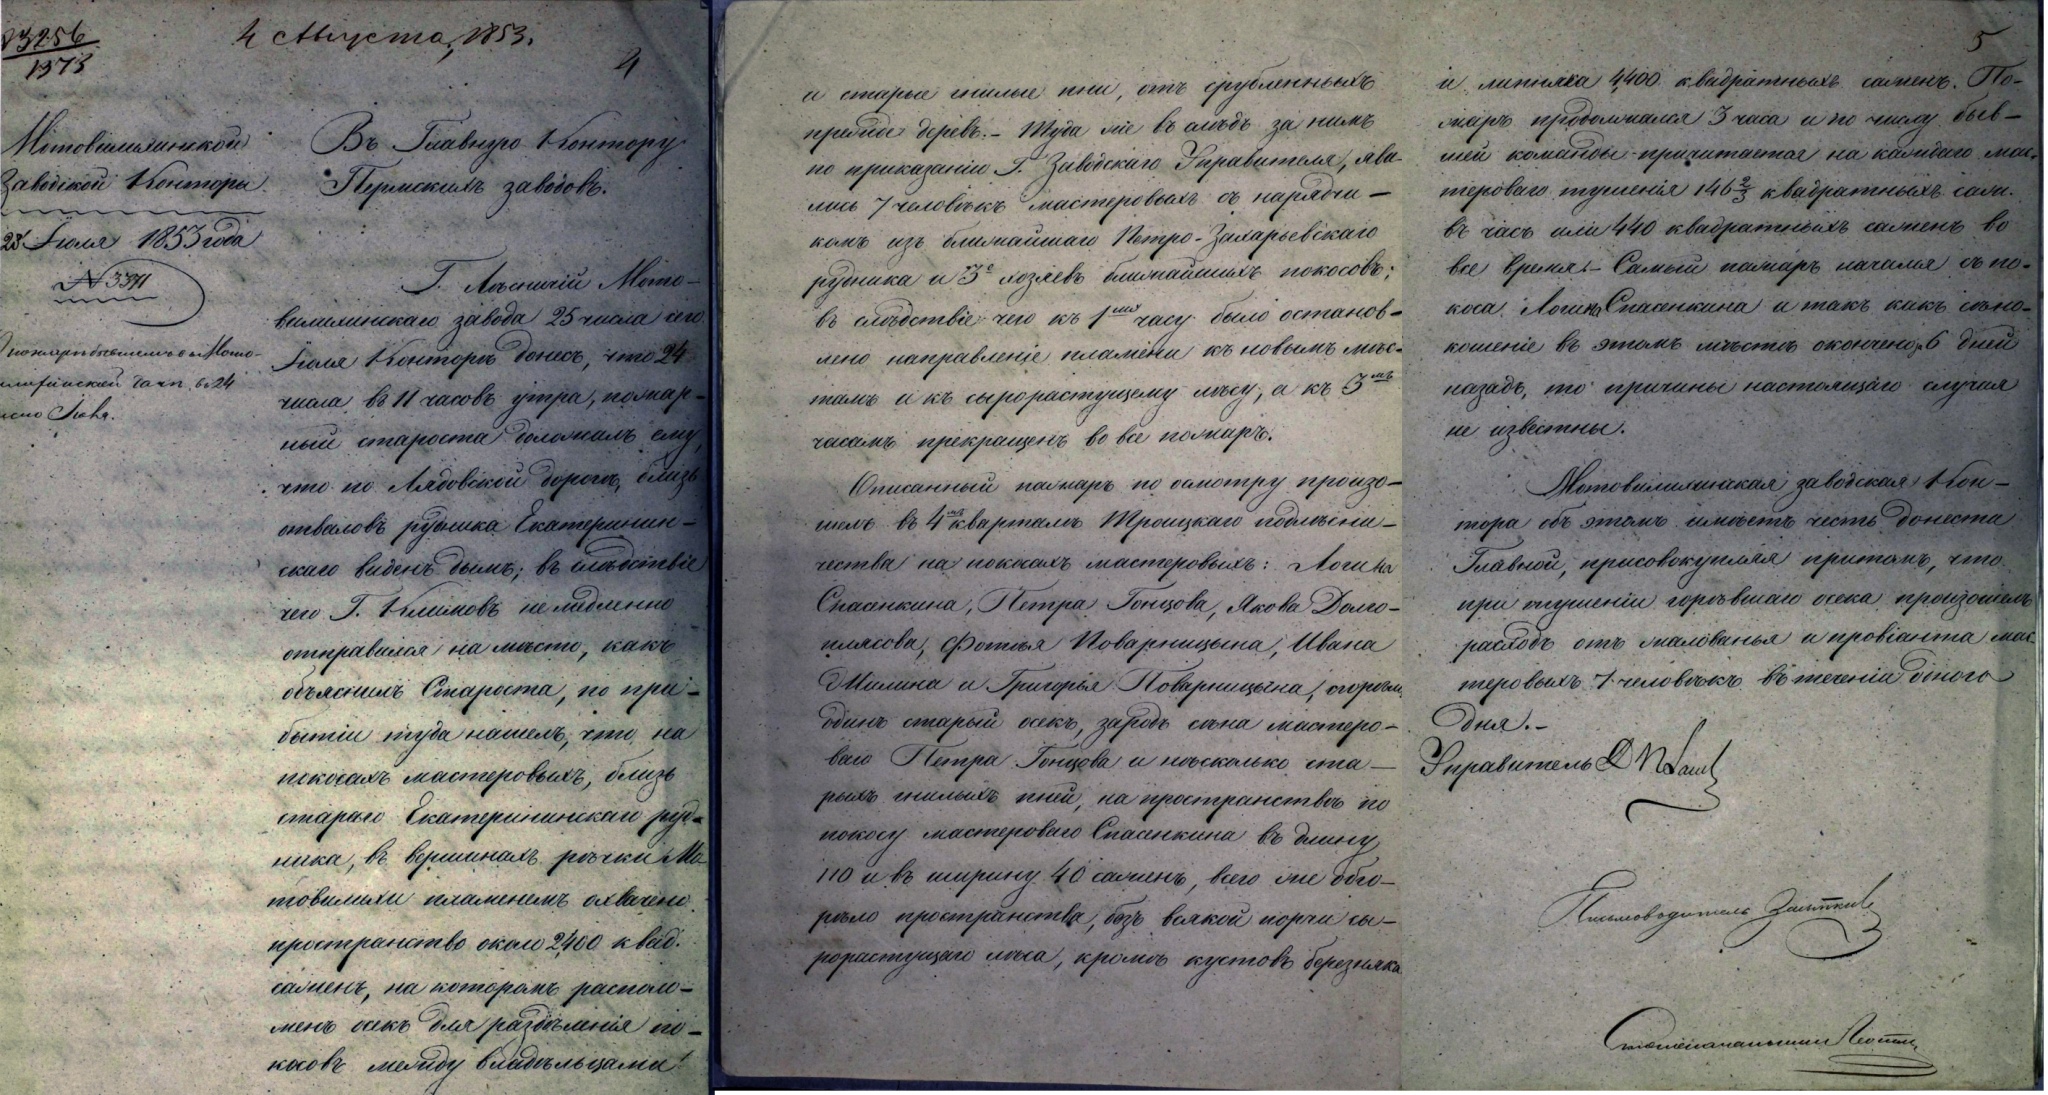 3256
1373
4 Августа, 1853.
4
Мотовилихинской
Заводской Конторы.
28 Іюля 1853 года
№ 3391
Въ Главную Контору
Пермскихъ заводовъ.
Г. Лѣсничій Мото-
вилихинскаго завода 25 числа сего
Іюля Конторѣ донесъ, что 24
числа, въ 11 часовъ утра, пожар-
ный староста доложилъ ему,
что по Лядовской дорогѣ, близь
отваловъ рудника Екатеринин-
скаго виденъ дымъ; въ слѣдствіе
чего Г. Климовъ немедленно
отправился на мѣсто, какъ
объяснилъ Староста, по при-
бытіи туда нашелъ, что на
покосахъ мастеровыхъ, близь
стараго Екатерининскаго руд-
ника, въ вершинахъ рѣчки Мо-
товилихи пламенемъ охвачено
пространство около 2400 квад.
саженъ, на которомъ располо-
женъ осекъ для раздѣленія по-
косовъ между владѣльцами
и старые гнилые пни, отъ срубленныхъ
прежде деревъ. – Туда же въ слѣдъ за нимъ
по приказанію Г. Заводскаго Управителя, яви-
лись 7 человѣкъ мастеровыхъ съ нарядчи-
комъ изъ ближайшаго Петро-Захарьевскаго
рудника и 3е хозяевъ ближайшихъ покосовъ;
въ слѣдствіе чего къ 1му часу было останов-
лено направленіе пламени къ новымъ мѣс-
тамъ и къ сырорастущему лѣсу, а къ 3мъ
часамъ прекращенъ во все пожаръ.
Описанный пожаръ по осмотру произо-
шелъ въ 4мъ кварталѣ Троицкаго подлѣсни-
чества на покосахъ мастеровыхъ: Логина
Спасенкина, Петра Гонцова, Якова Долго-
плясова, Фотея Поварницына, Ивана
Милина и Григорья Поварницына, огорѣли
одинъ старый осекъ, зародъ сѣна мастеро-
ваго Петра Гонцова и нѣсколько ста-
рыхъ гнилыхъ пней, на пространствѣ по
покосу мастероваго Спасенкина въ длину
110 и въ ширину 40 саженъ, всего же обго-
рѣло пространства, безъ всякой порчи сы-
рорастущаго лѣса, кромѣ кустовъ березняка
5
и липняка 4,400 квадратныхъ саженъ. По-
жаръ продолжался 3 часа и по числу быв-
шей команды причитается на каждаго мас-
тероваго тушенія 146 2/3 квадратныхъ саж.
въ часъ или 440 квадратныхъ саженъ во
все время. – Самый пожаръ начался съ по-
коса Логина Спасенкина и такъ какъ сѣно-
кошеніе въ этомъ мѣстѣ окончено 6 дней
назадъ, то причины настоящаго случая
не извѣстны.
Мотовилихинская заводская Кон-
тора объ этомъ имѣетъ честь донести
Главной, присовокупляя притомъ, что
при тушеніи горѣвшаго осека произошелъ
расходъ отъ жалованья и провіанта мас-
теровыхъ 7 человѣкъ въ теченіи одного
дня. –
Управитель
Письмоводитель
Столоначальникъ